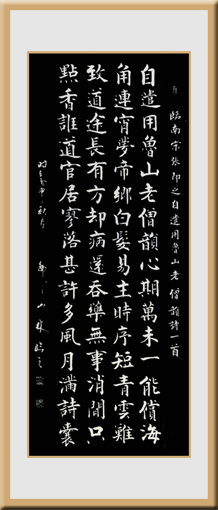 臨南宗張即之自遣用魯山老僧韻詩一首
自遣用魯山老僧韻心期萬未一能償海
角連宵夢帝鄉白髮易生時序短青雲難
致道途長有方却病遲吞藥無事消閒只
點香誰道官居寥落甚許多風月滿詩囊